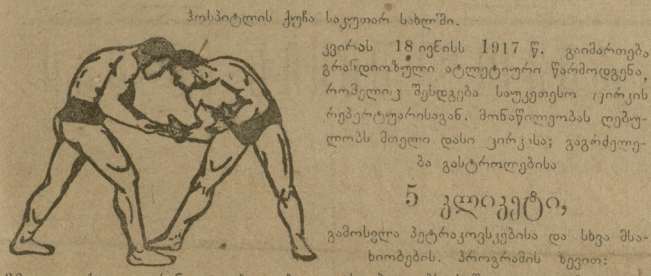 ჰოსპიტლის ქუჩა საკუთარ სახლში.
კვირას 18 ივნისს 1917 წ. გაიმართება
გრანდიოზული ატლეტიური წარმოდგენა,
რომელიც შესდგება საუკეთესო ცირკის
რეპერტუარისაგან. მონაწილეობას ღებუ-
ლობს მთელი დასი ცირკისა; გაგრძელე-
ბა გასტროლებისა
5 კლიკეტი,
გამოსვლა პეტრაკოვსკებისა და სხვა მსა-
ხიობების. პროგრამის ზევით: